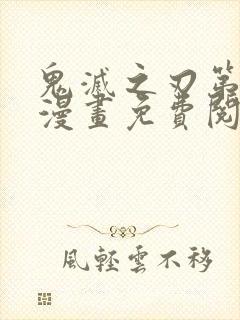 鬼滅之刃第
漫畫免費閱
風輕雲不移